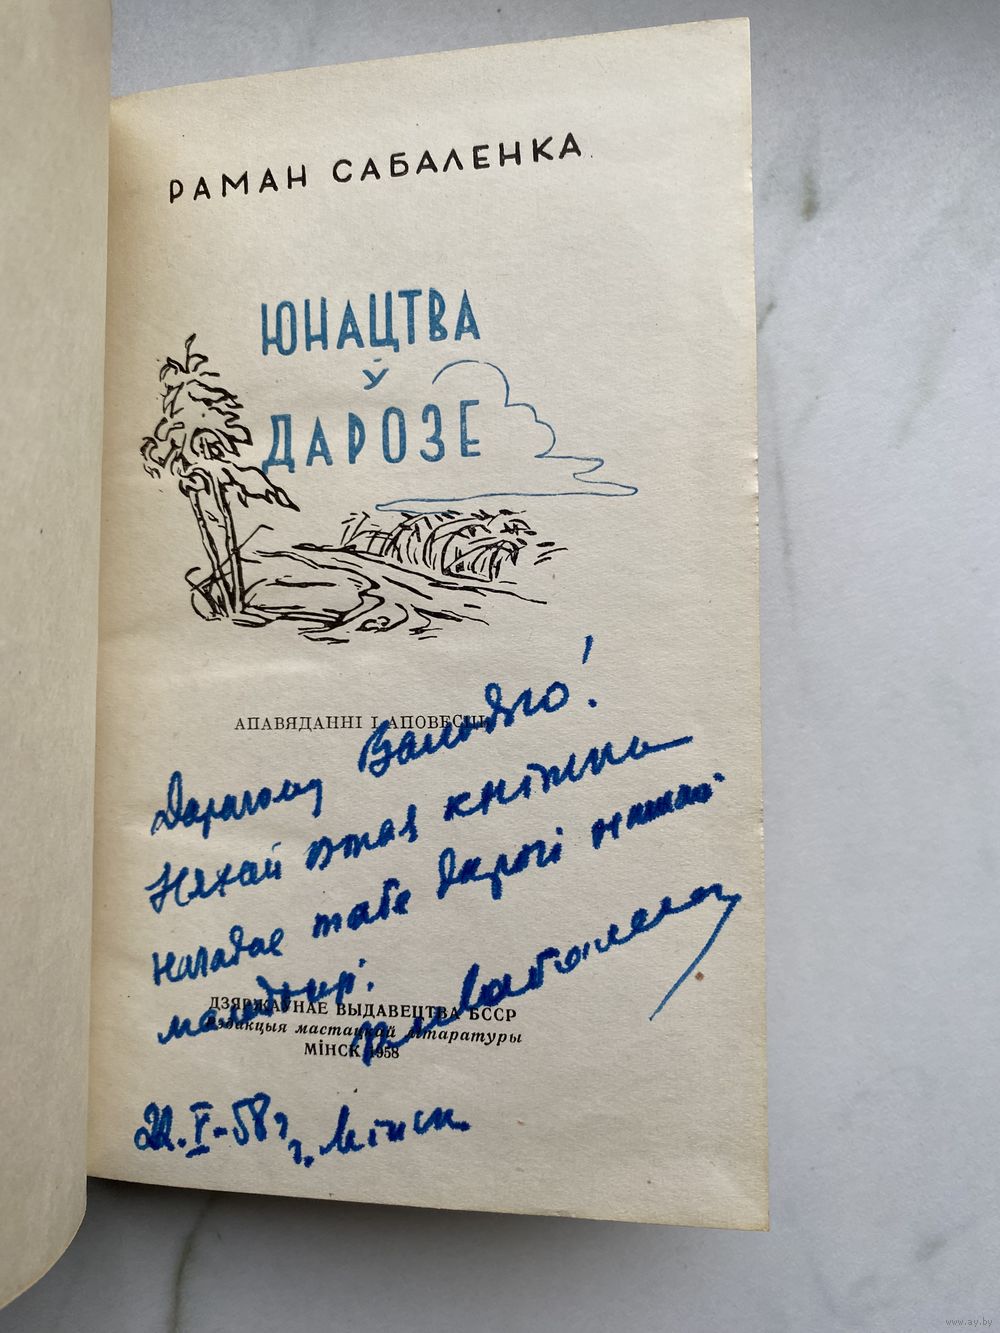 РАМАН САБАЛЕНКА
ЮНАЦТВА
Ў
ДАРОЗЕ
АПАВЯДАННІ І АПОВЕСЦЬ
Дарагому Валодзю!
Няхай гэтая кніжка
нагадае табе дарогі нашай
маладосці.
Р. Сабаленка
ДЗЯРЖАЎНАЕ ВЫДАВЕЦТВА БССР
Рэдакцыя мастацкай літаратуры
МІНСК 1958
22.V-58 г.
г. Мінск.
www.ay.by